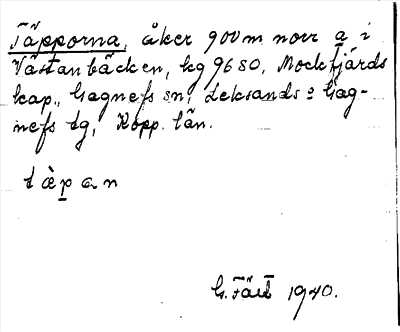 Täpporna, åker 900 m norr a i
Västanbäcken, kg 9680, Mockfjärds
kap., Gagnefs sn, Leksands o Gag-
nefs tg, Kopp. län.
tàpan
G. Färd 1940.